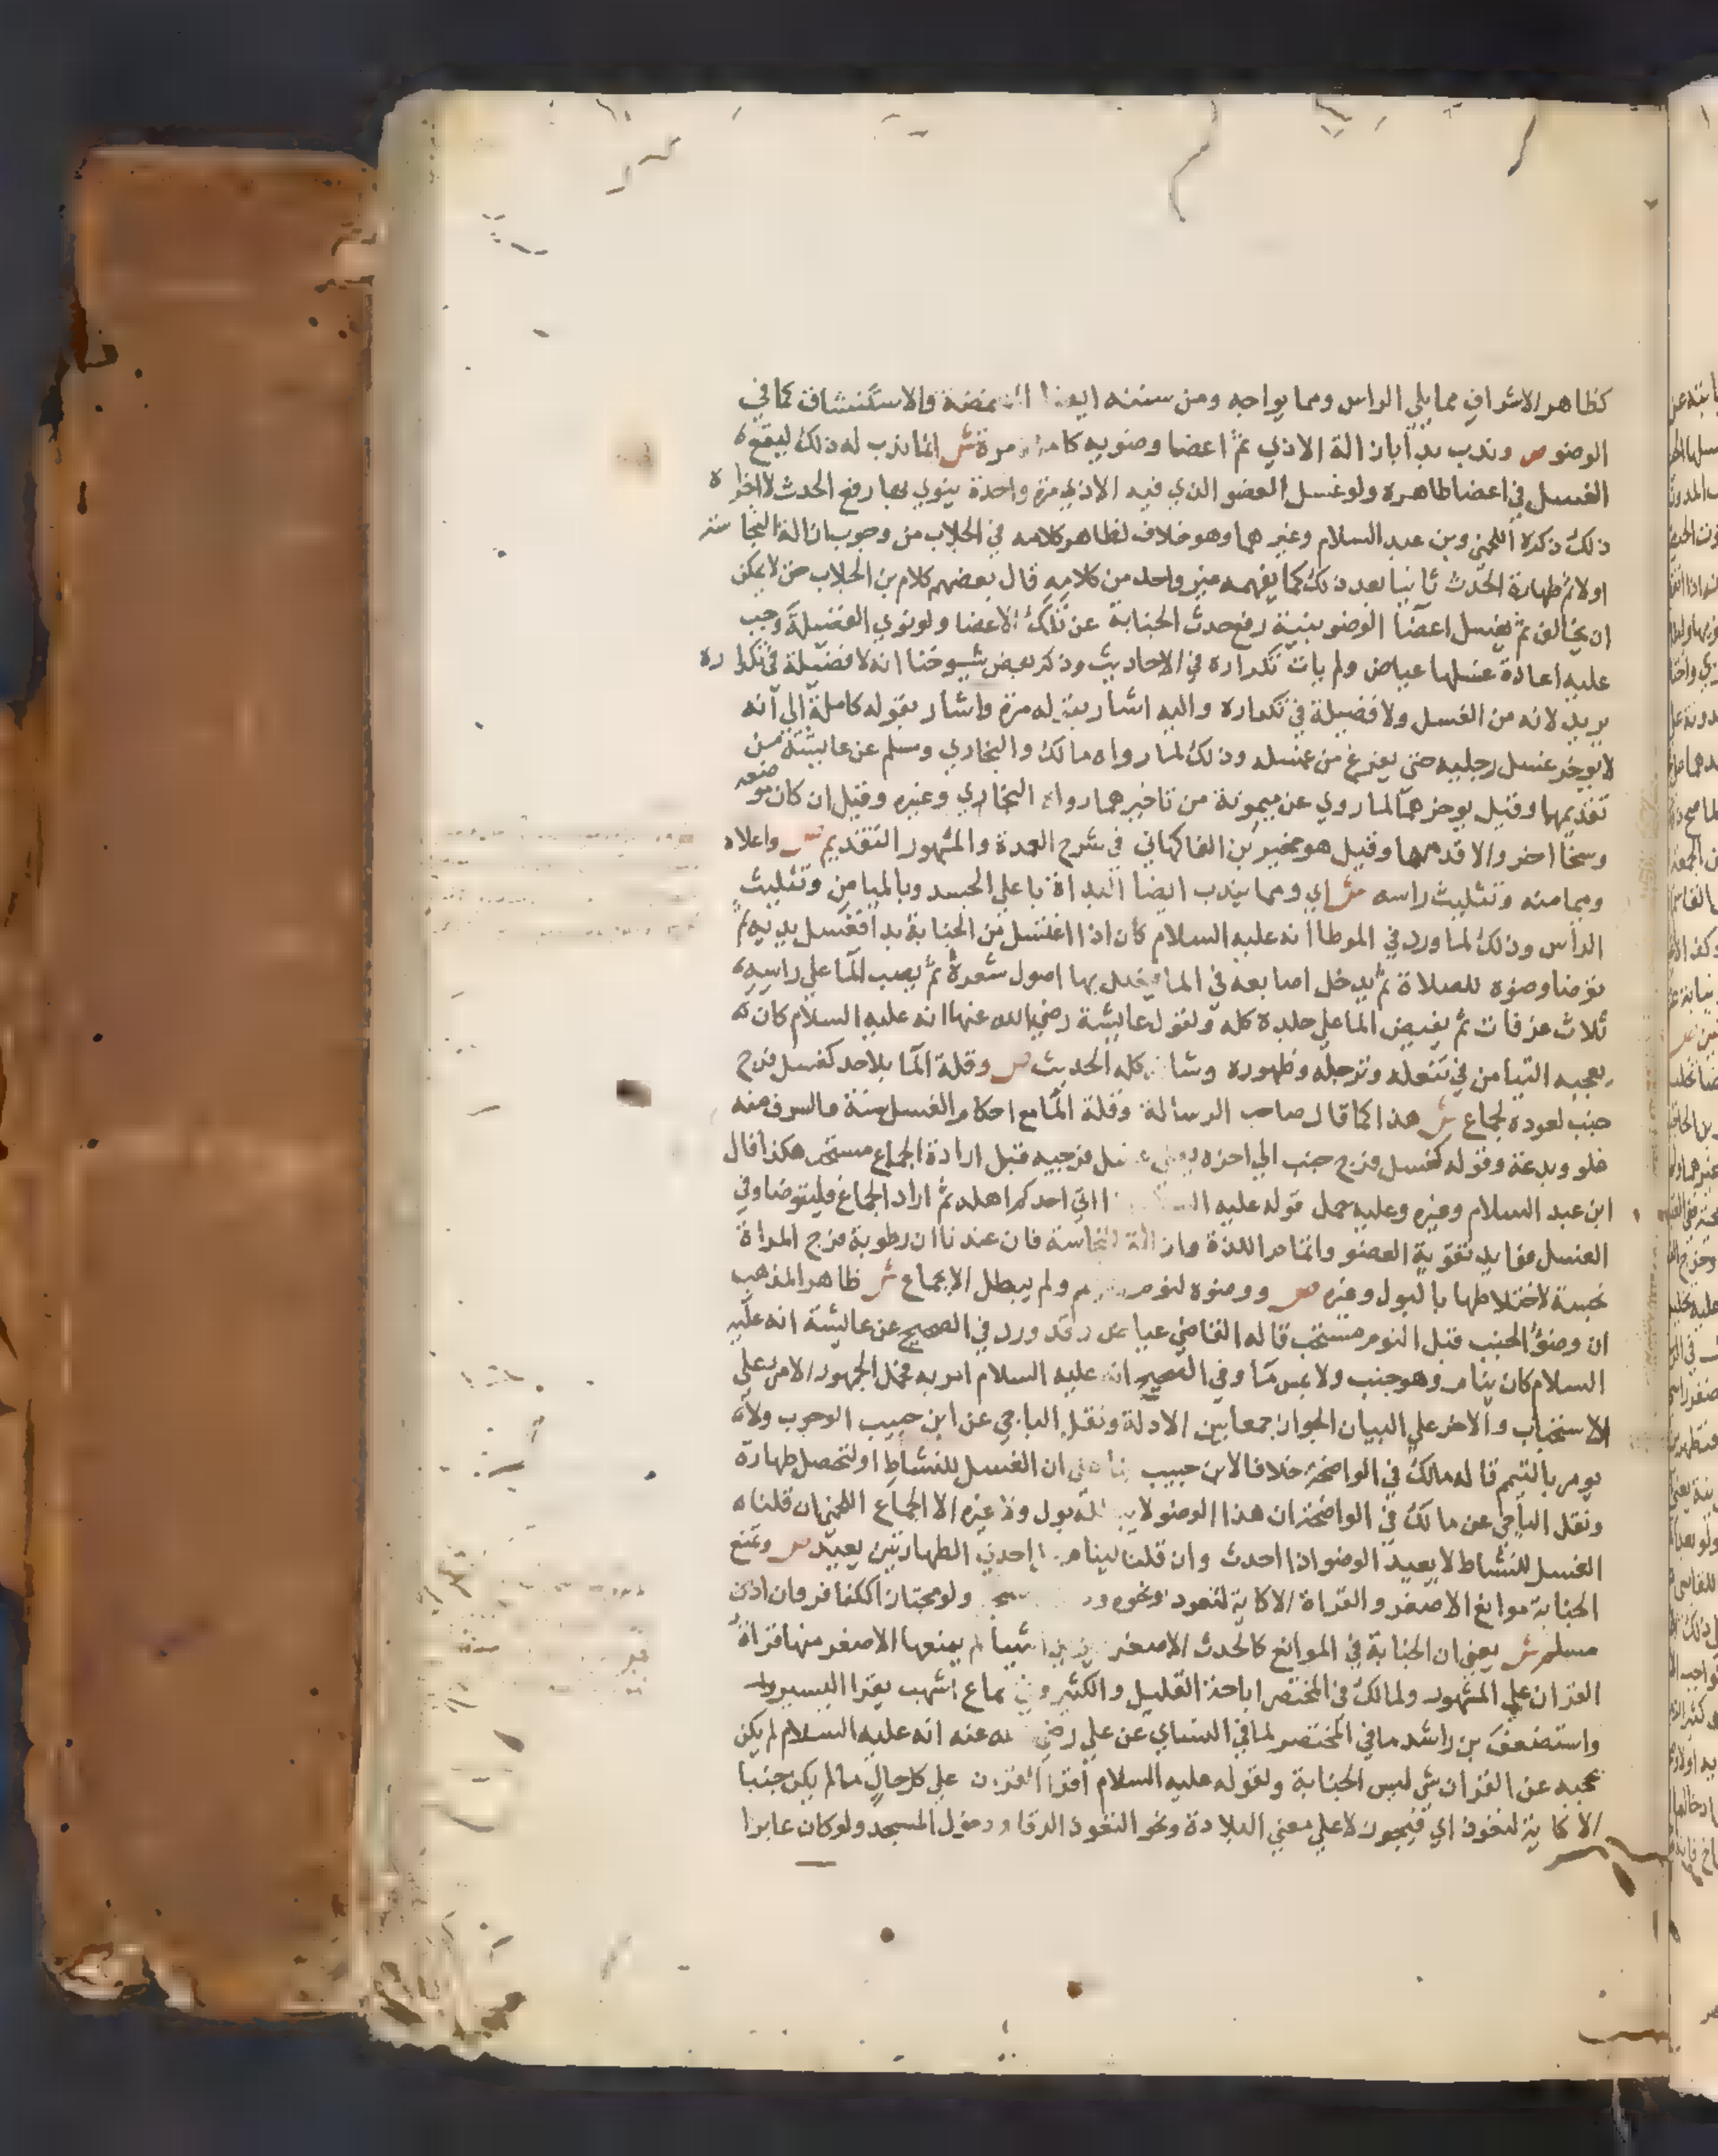 كظاهر الاشراف مما يلي الراس ومما يواجه ومن سننه ايضا المضمضة والاستنشاق كما في
الوضو ص وندب بدا بازالة الاذي ثم اعضا وضويه كاملة مرة ش انما ندب له ذلك ليقع
الغسل في اعضا طاهرة ولو غسل العضو الذي فيه الاذي مرة واحدة ينوي بها رفع الحدث لاجزاه
ذلك ذكره اللخمي وبن عبد السلام وغيرهما وهو خلاف لظاهر كلامه في الجلاب من وجوب ازالة النجاسة
اولا ثم طهارة الحدث ثانيا بعد ذلك كما يفهمه غير واحد من كلامه قال بعضهم كلام بن الجلاب حق لا يمكن
ان يخالف ثم يغسل اعضا الوضو بنية رفع حدث الجنابة عن تلك الاعضا ولو نوي الفضيلة وجب
عليه اعادة غسلها عياض ولم يات تكراره في الاحاديث وذكر بعض شيوخنا انه لا فضيلة في تكراره
يريد لانه من الغسل ولا فضيلة في تكراره واليه اشار بقوله مرة واشار بقوله كاملة الي انه
لا يوخر غسل رجليه حتي يفرغ من غسله وذلك لما رواه مالك والبخاري ومسلم عن عايشة من
تقديمها وقيل يوخرهما لما روي عن ميمونة من تاخيرهما رواه البخاري وغيره وقيل ان كان موضعه
وسخا اخر والا قدمها وقيل هو مخير بن الفاكهاني في شرح العمدة والمشهور التقديم ص واعلاه
وميامنه وتثليث راسه ش اي ومما يندب ايضا البداة باعلي الجسد وبالميامن وتثليث
الراس وذلك لما ورد في الموطا انه عليه السلام كان اذا اغتسل من الجنابة بدا فغسل يديه ثم
توضا وضوه للصلاة ثم يدخل اصابعه في الما فيخلل بها اصول شعره ثم يصب الما علي راسه
ثلاث غرفات ثم يفيض الما علي جلده كله ولقول عايشة رضي الله عنها انه عليه السلام كان
يعجبه التيامن في تنعله وترجله وطهوره وشانه كله الحديث ص وقلة الما بلا حد كغسل فرج
جنب لعوده لجماع ش هذا كما قال صاحب الرسالة وقلة الما مع احكام الغسل سنة والسرف منه
غلو وبدعة وقوله كغسل فرج جنب الي اخره يعني غسل فرجيه قبل ارادة الجماع مستحب هكذا قال
ابن عبد السلام وغيره وعليه حمل قوله عليه السلام اذا اتي احدكم اهله ثم اراد الجماع فليتوضا وفي
الغسل فوايد تقوية العضو واتمام اللذة وازالة النجاسة فان عندنا ان رطوبة فرج المراة
نجسة لاختلاطها بالبول وغيره ص ووضوه لنوم ولم يبطل الا بجماع ش ظاهر المذهب
ان وضو الجنب قبل النوم مستحب قاله القاضي عياض وقد ورد في الصحيح عن عايشة انه عليه
السلام كان ينام وهو جنب ولا يمس ما وفي الصحيح انه عليه السلام امر به فحمل الجمهور الامر علي
الاستحباب والاخر علي البيان الجواز جمعا بين الادلة ونقل الباجي عن ابن حبيب الوجوب ولا
يومر بالتيمم قاله مالك في الواضحة خلافا لابن حبيب بنا علي ان الغسل للنشاط او لتحصل طهارة
ونقل الباجي عن مالك في الواضحة ان هذا الوضو لا يبطله بول ولا غيره الا الجماع اللخمي ان قلنا
الغسل للنشاط لا يعيد الوضو اذا احدث وان قلنا لينام علي احدي الطهارتين يعيد ص وتمنع
الجنابة موانع الاصغر والقراة الا كاية لتعوذ ونحوه ودخول مسجد ولو مجتازا ككافر وان اذن
مسلم ش يعني ان الجنابة في الموانع كالحدث الاصغر ويزيد اشيا لم يمنعها الاصغر منها قراة
القران علي المشهور ولمالك في المختصر اباحة القليل والكثير وفي سماع اشهب يقرا اليسير
واستضعف بن راشد ما في المختصر لما في النساي عن علي رضي الله عنه انه عليه السلام لم يكن
يحجبه عن القران شي ليس الجنابة ولقوله عليه السلام اقرا القران علي كل حال ما لم يكن جنبا
الا كاية لتعوذ اي فيجوز لا علي معني التلاوة ونحو التعوذ الرقا ودخول المسجد ولو كان عابرا